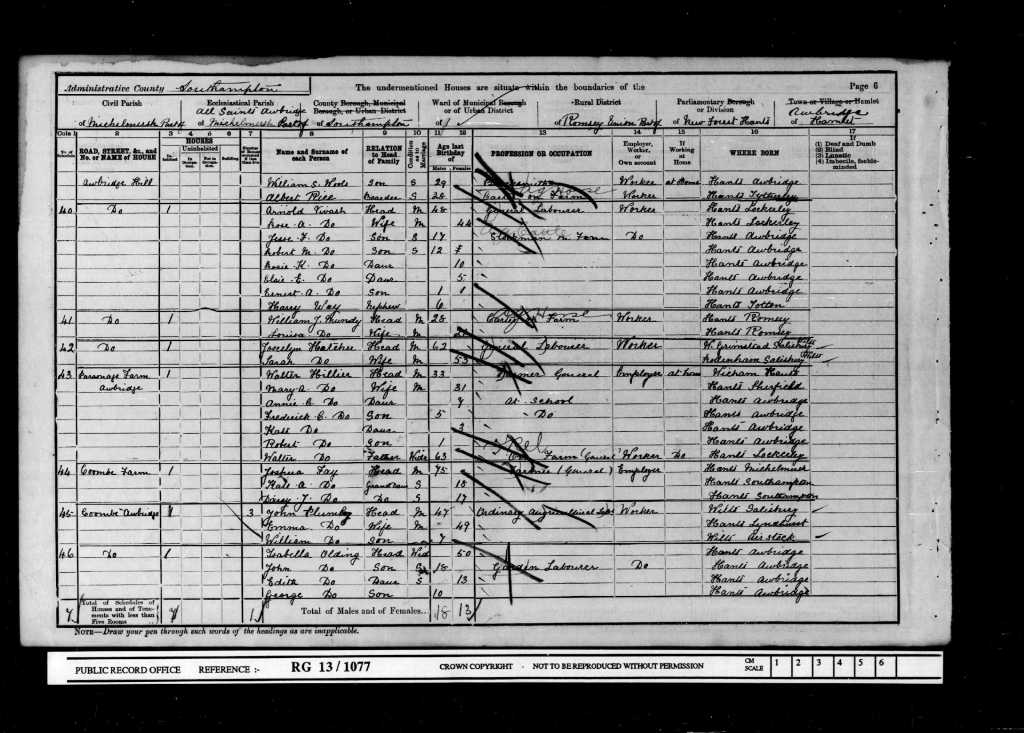 Administrative County Southampton The undermentioned Houses are situate within the boundaries of the Page 6
Civil Parish Ecclesiastical Parish County Borough, Municipal Borough, or Urban District Ward of Municipal Borough or of Urban District Rural District Parliamentary Borough or Division Town or Village or Hamlet
of Michelmersh Part of of All Saints Awbridge Michelmersh Part of of Southampton of of Romsey Union Part of of New Forest Hants of Awbridge Hamlet
Cols 1 2 3 4 5 6 7 8 9 10 11 12 13 14 15 16 17
No. of Schedule ROAD, STREET, &c., and No. or NAME of HOUSE HOUSES Inhabited Uninhabited Building Name and Surname of each Person RELATION to Head of Family Condition as to Marriage Age last Birthday of Males Females PROFESSION OR OCCUPATION Employer, Worker, or Own account If Working at Home WHERE BORN If (1) Deaf and Dumb (2) Blind (3) Lunatic (4) Imbecile, feeble-minded
Awbridge Hill William S. Son S 29 Worker at Home Hants Awbridge
Albert Rice Boarder S 28 on Farm Worker Hants Tytherley
40 Do 1 Arnold Vivash Head M 48 General Labourer Worker Hants Lockerley
Rose A. Do Wife M 44 Hants Lockerley
Jesse F. Do Son S 17 Stockman on Farm Do Hants Awbridge
Robert M. Do Son S 12 Hants Awbridge
Rosie K. Do Daur 10 Hants Awbridge
Elsie E. Do Daur 5 Hants Awbridge
Ernest A. Do Son 1 Hants Awbridge
Harry Way Nephew 6 Hants Totton
41 Do 1 William J. Mundy Head M 28 Carter on Farm Worker Hants Romsey
Louisa Do Wife M Hants Romsey
42 Do 1 Joscelyn Hatcher Head M 62 General Labourer Worker W. Grimstead Salisbury Wilts
Sarah Do Wife M 53 Salisbury Wilts
43 Parsonage Farm Awbridge 1 Walter Hillier Head M 33 Farmer General Employer at home Wickham Hants
Mary A Do Wife M 31 Hants Sherfield
Annie C. Do Daur 7 At School Hants Awbridge
Frederick C. Do Son 5 Do Hants Awbridge
Kate Do Daur 3 Hants Awbridge
Robert Do Son 1 Hants Awbridge
Walter Do Father Widr 63 On Farm General Worker Do Hants Lockerley
44 Coombe Farm 1 Joshua Fay Head M 75 Farmer (General) Employer Hants Michelmersh
Kate A. Do Grandaur S 18 Hants Southampton
Daisy J. Do Do S 17 Hants Southampton
45 Coombe Awbridge 1 3 John Plumley Head M 47 Ordinary Agricultural Labr Worker Wilts Salisbury
Emma Do Wife M 49 Hants Lyndhurst
William Do Son 7 Wilts
46 Do 1 Isabella Olding Head Wid 50 Hants Awbridge
John Do Son S 18 Garden Labourer Do Hants Awbridge
Edith Do Daur S 13 Hants Awbridge
George Do Son 10 Hants Awbridge
7 Total of Schedules of Houses and of Tenements with less than Five Rooms 7 1 Total of Males and of Females.. 18 13
NOTE—Draw your pen through such words of the headings as are inapplicable.
PUBLIC RECORD OFFICE REFERENCE :- RG 13/1077 CROWN COPYRIGHT - NOT TO BE REPRODUCED WITHOUT PERMISSION CM SCALE 1 2 3 4 5 6